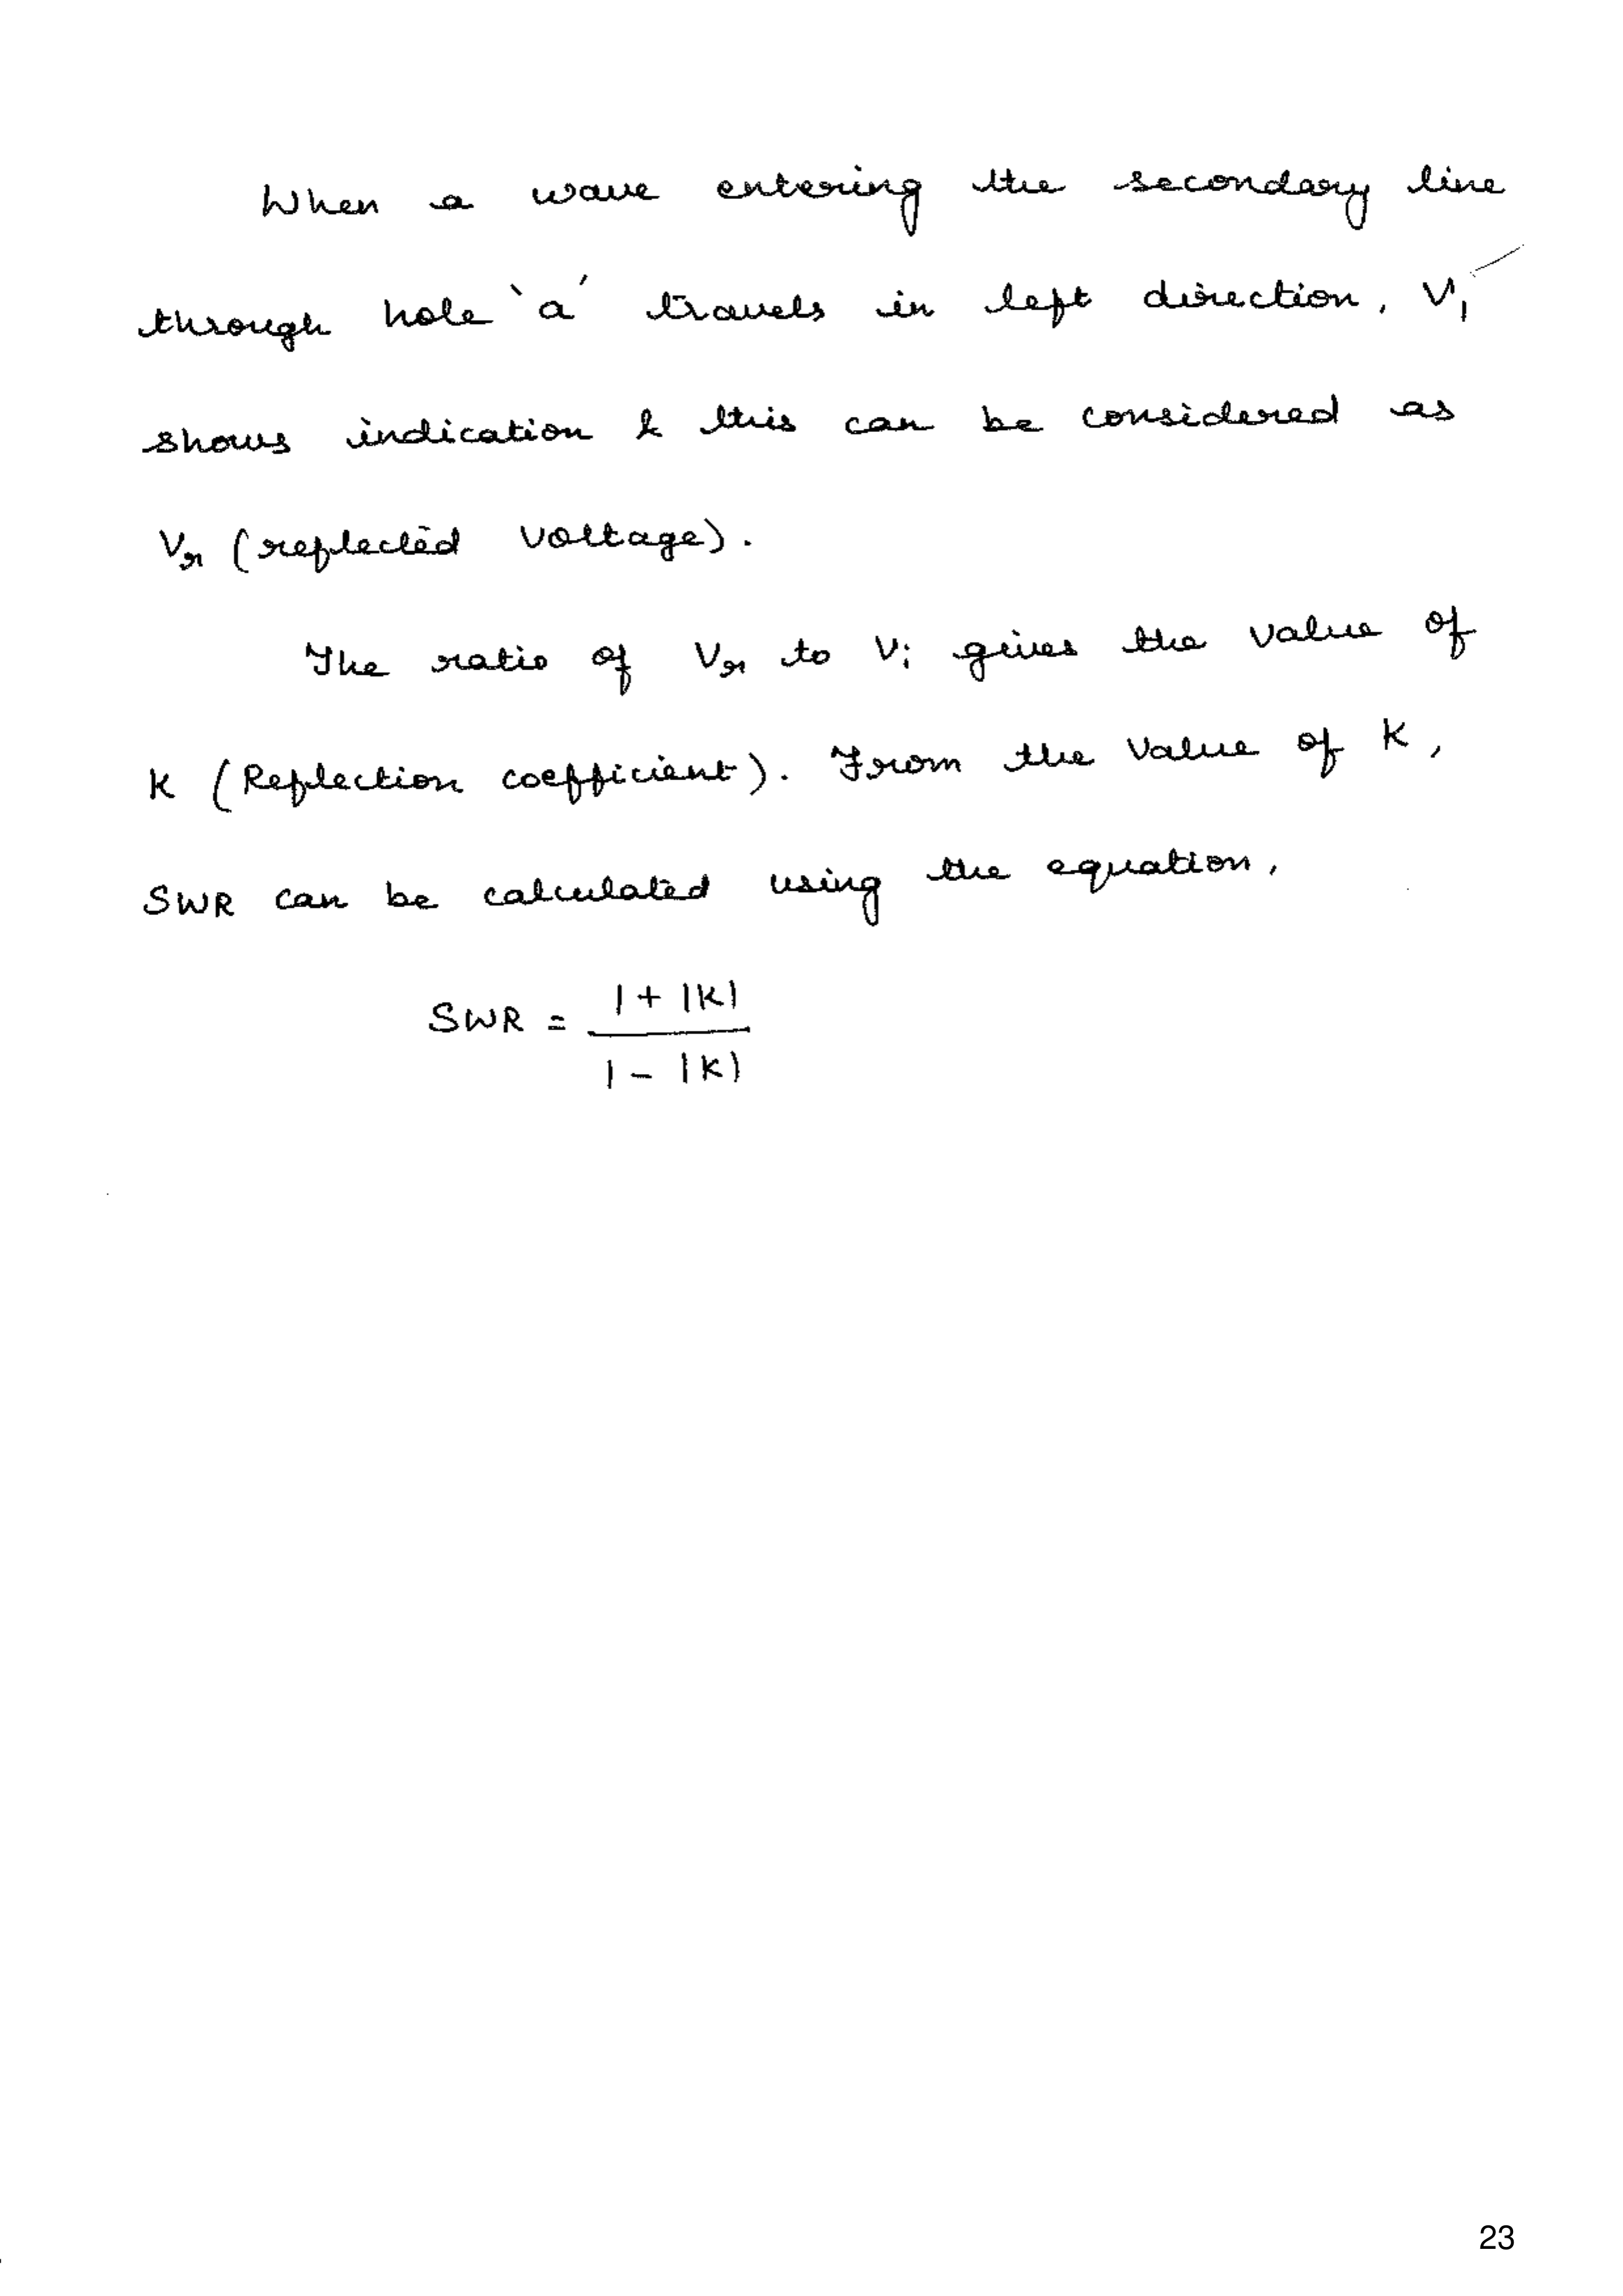 When a wave entering the secondary line
through hole 'a' travels in left direction, V₁
shows indication & this can be considered as
Vr (reflected voltage).
The ratio of Vr to Vi gives the value of
K (Reflection coefficient). From the value of K,
SWR can be calculated using the equation,
SWR = 1 + |K|
1 - |K|
23